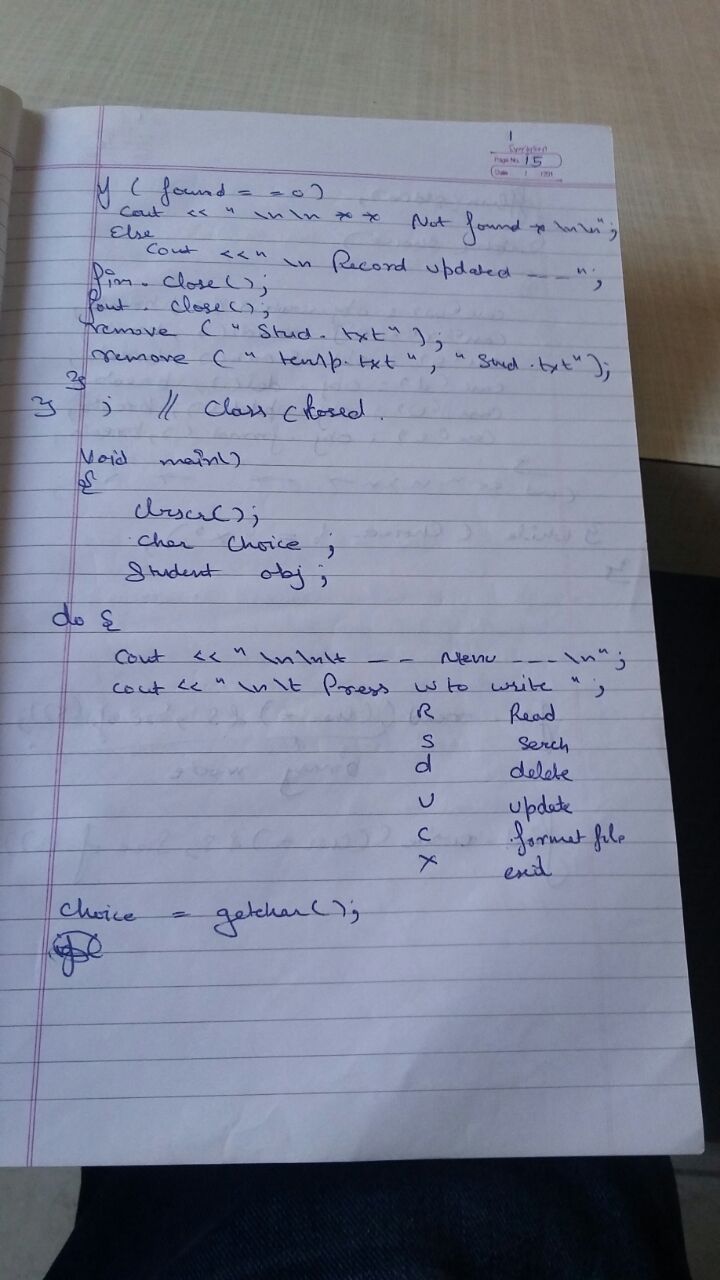 1
Page No. 15
Date / /201
if ( found = = 0 )
cout << " \n\n * * Not found * \n\n" ;
Else
cout << " \n Record updated - - - " ;
fin . close ( ) ;
fout . close ( ) ;
remove ( " Stud . txt " ) ;
remove ( " temp . txt " , " Stud . txt " ) ;
}
} ; // Class Closed .
Void main ( )
{
clrscr ( ) ;
char choice ;
Student obj ;
do {
cout << " \n\n\t - - Menu - - - \n " ;
cout << " \n\t Press w to write " ;
R Read
S Serch
d delete
U update
C format file
X exit
Choice = getchar ( ) ;